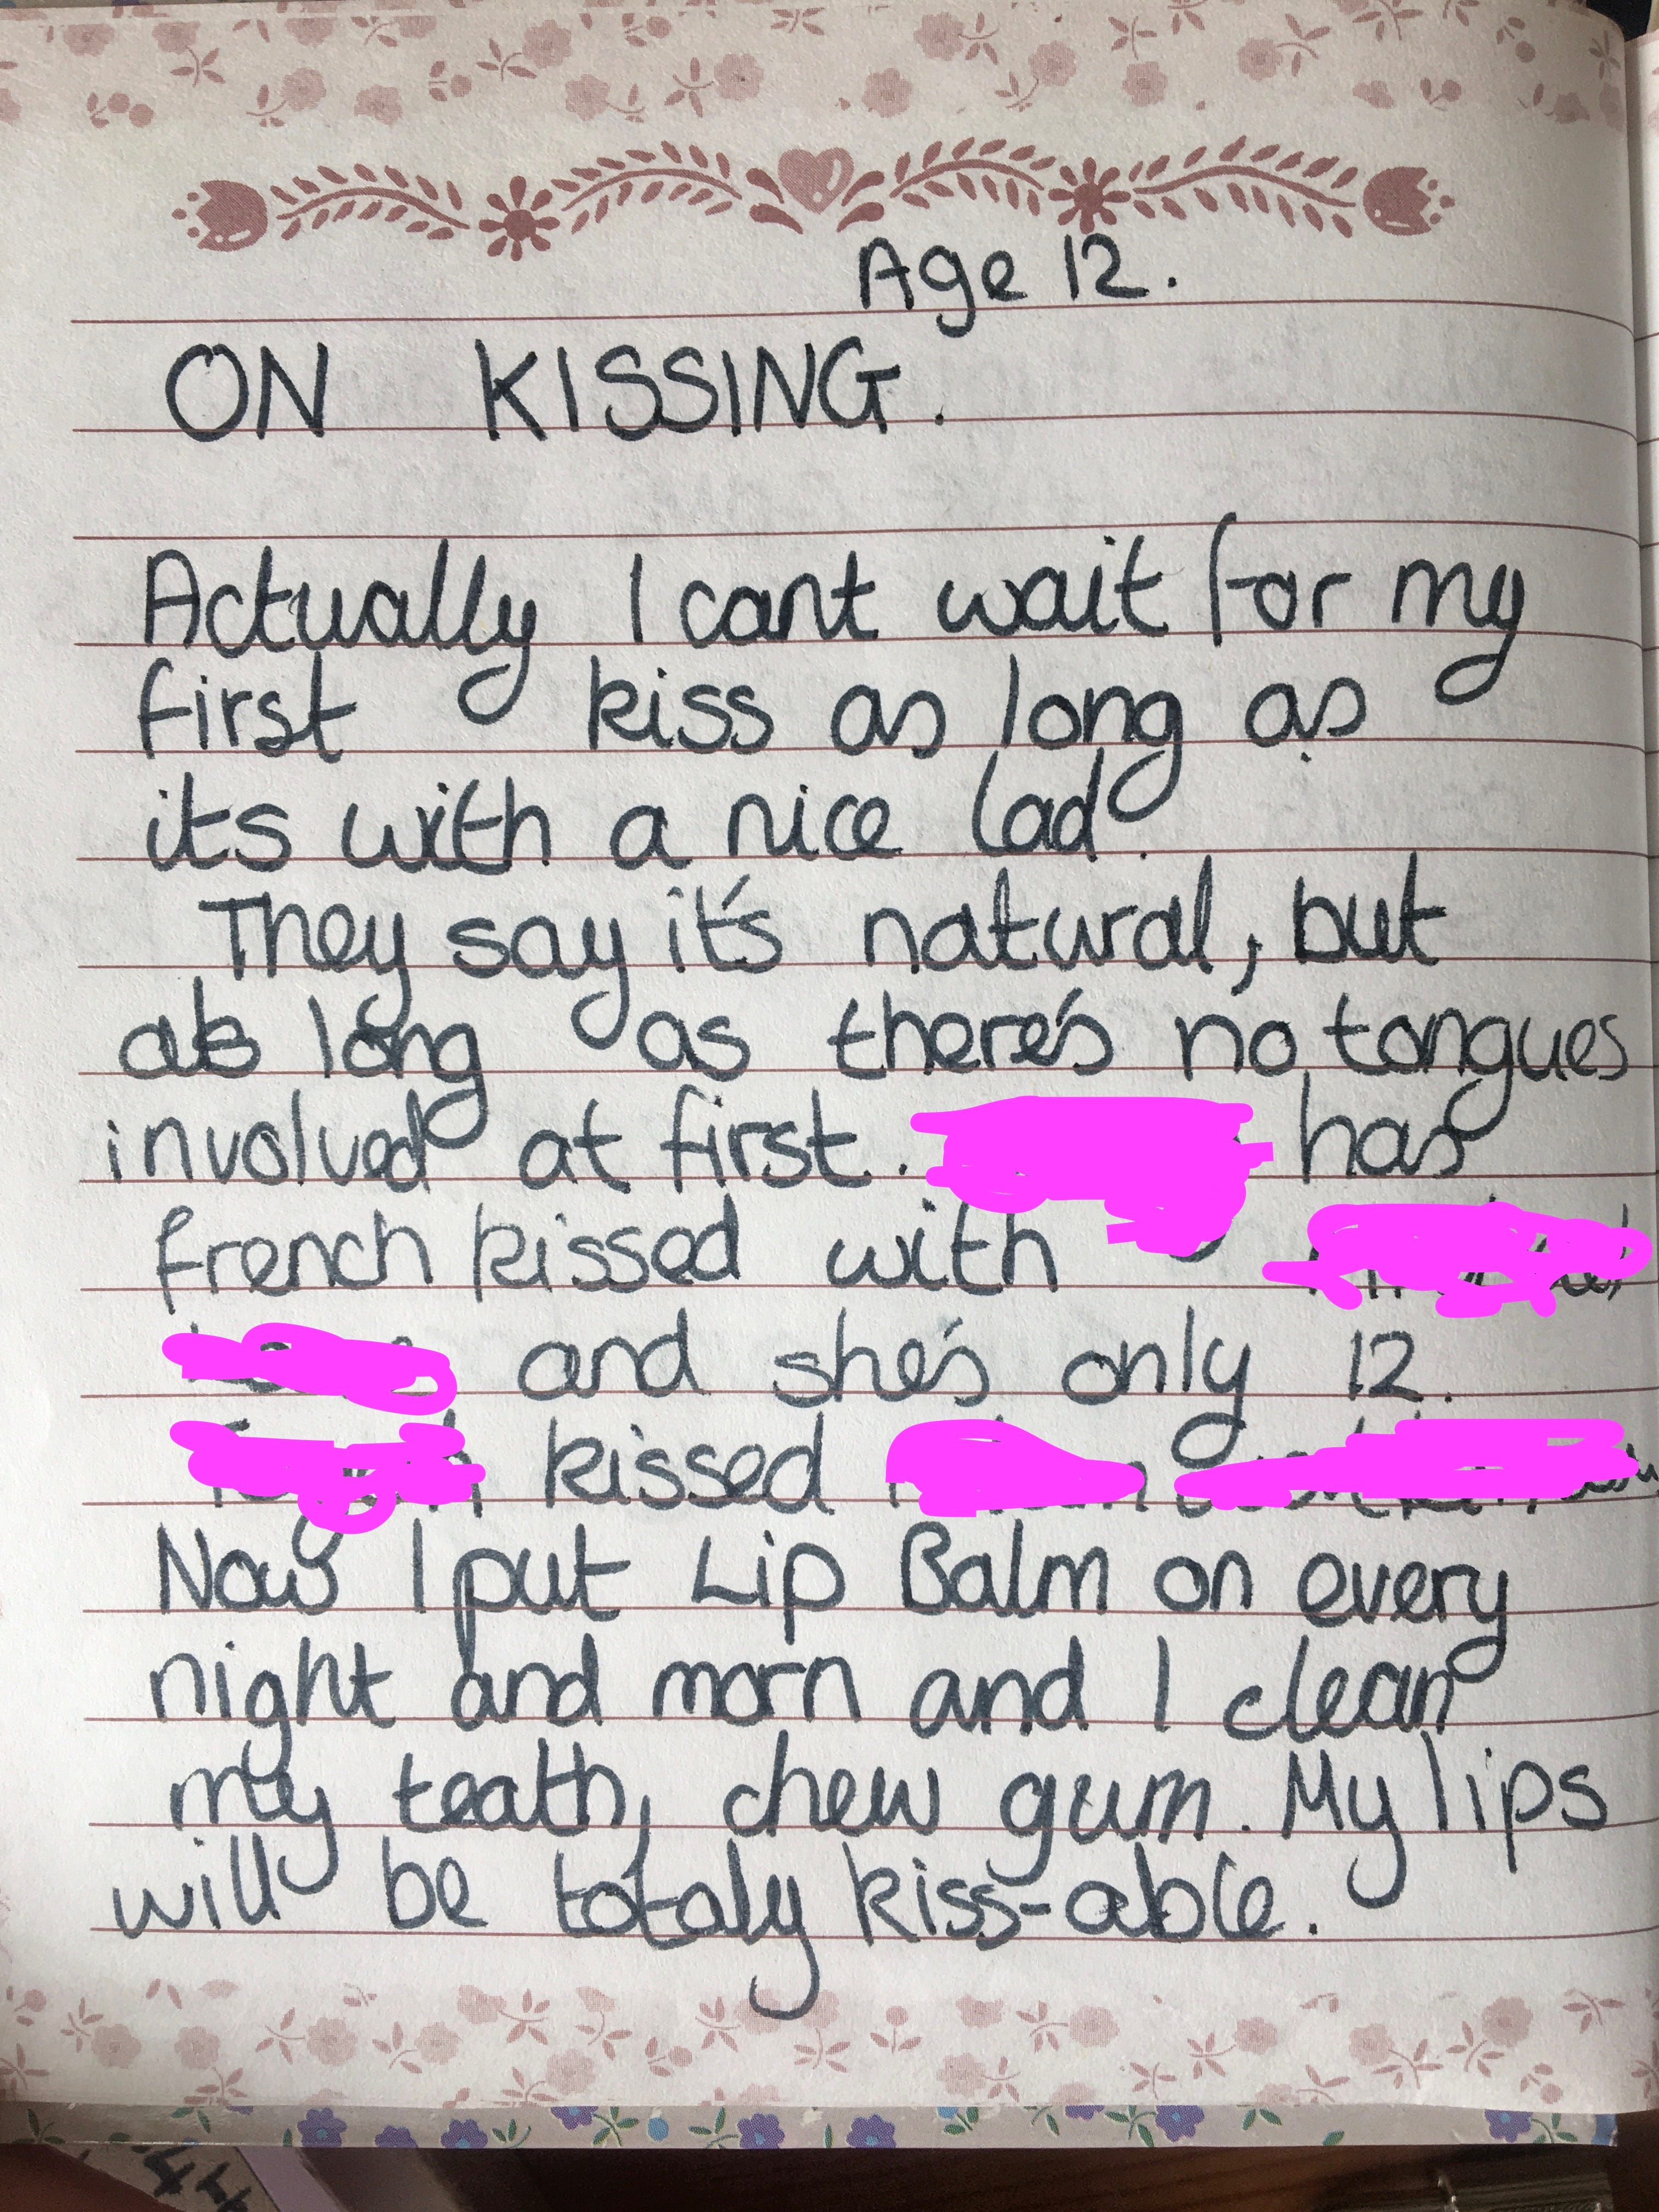 Age 12.
ON KISSING.
Actually I cant wait for my
first kiss as long as
its with a nice lad.
They say it's natural, but
as long as there's no tongues
involved at first. has
french kissed with
and she's only 12.
kissed
Now I put Lip Balm on every
night and morn and I clean
my teath, chew gum. My lips
will be totaly kiss-able.